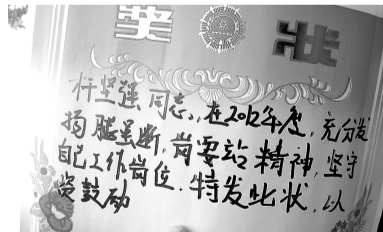 奖状
杆坚强同志,在2012年度,充分发
扬腿虽断,岗要站精神,坚守
自己工作岗位.特发此状,以
资鼓励